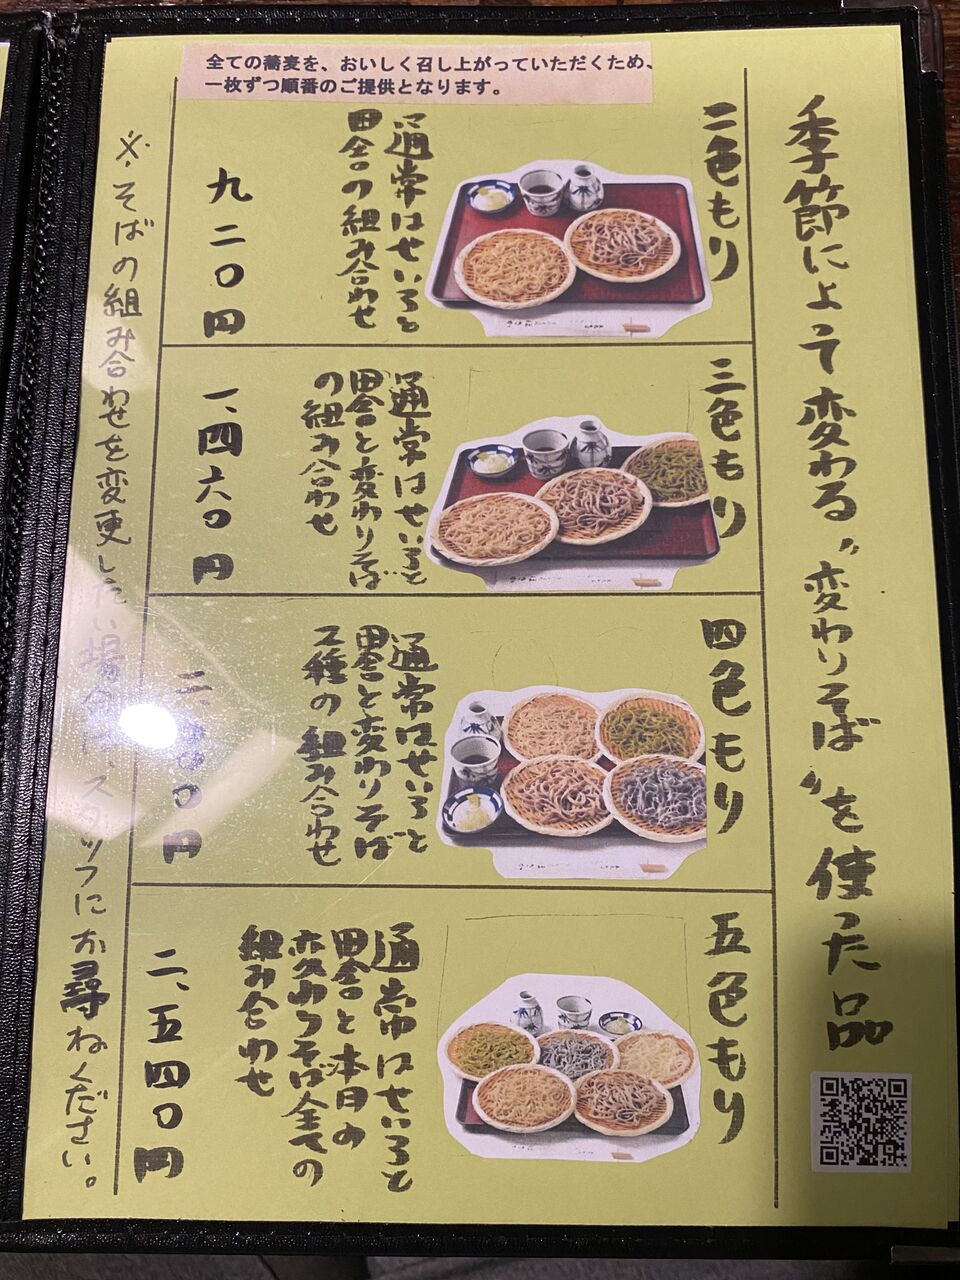 全ての蕎麦を、おいしく召し上がっていただくため、
一枚ずつ順番のご提供となります。
季節によって変わる〝変わりそば〟を使った品
二色もり
通常はせいろと
田舎の組み合わせ
九二〇円
三色もり
通常はせいろと
田舎と変わりそば
の組み合わせ
一、四六〇円
四色もり
通常はせいろと
田舎と変わりそば
2種の組み合わせ
二、〇〇〇円
五色もり
通常はせいろと
田舎と本日の
変わりそば全ての
組み合わせ
二、五四〇円
※そばの組み合わせを変更したい場合は、スタッフにお尋ねください。